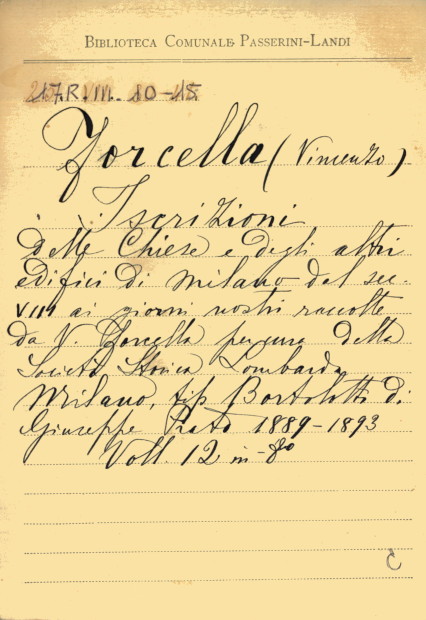 BIBLIOTECA COMUNALE PASSERINI-LANDI
17.R.III. 10-15
Forcella (Vincenzo)
Iscrizioni
delle Chiese e degli altri
edifici di Milano dal sec.
VIII ai giorni nostri raccolte
da V. Forcella per cura della
Società Storica Lombarda
Milano, tip Bortolotti di
Giuseppe Prato 1889-1893
Voll. 12 in-8º
C